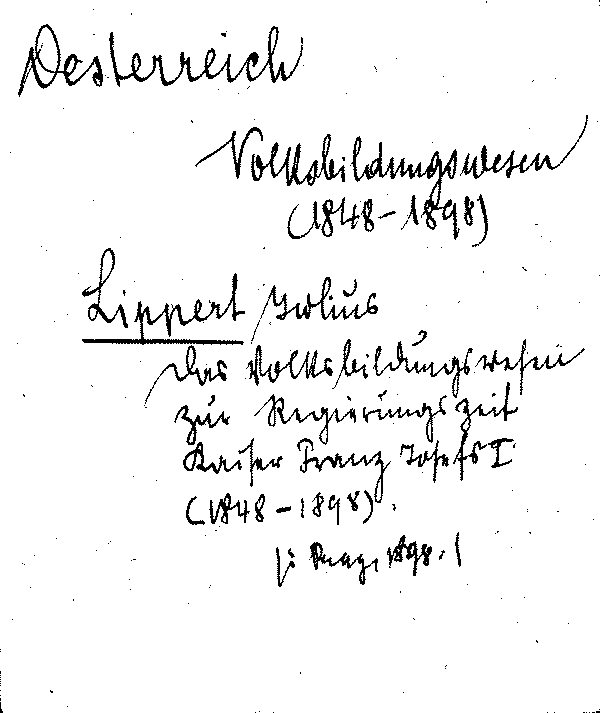 Oesterreich
Volksbildungswesen
(1848-1898)
Lippert, Julius
Das Volksbildungswesen
zur Regierungszeit
Kaiser Franz Josefs I
(1848-1898).
|: Prag, 1898. |